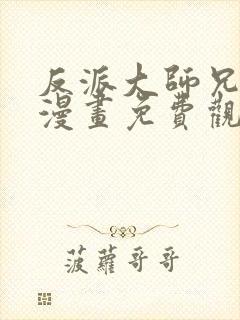 反派大師兄
漫畫免費觀
菠蘿哥哥